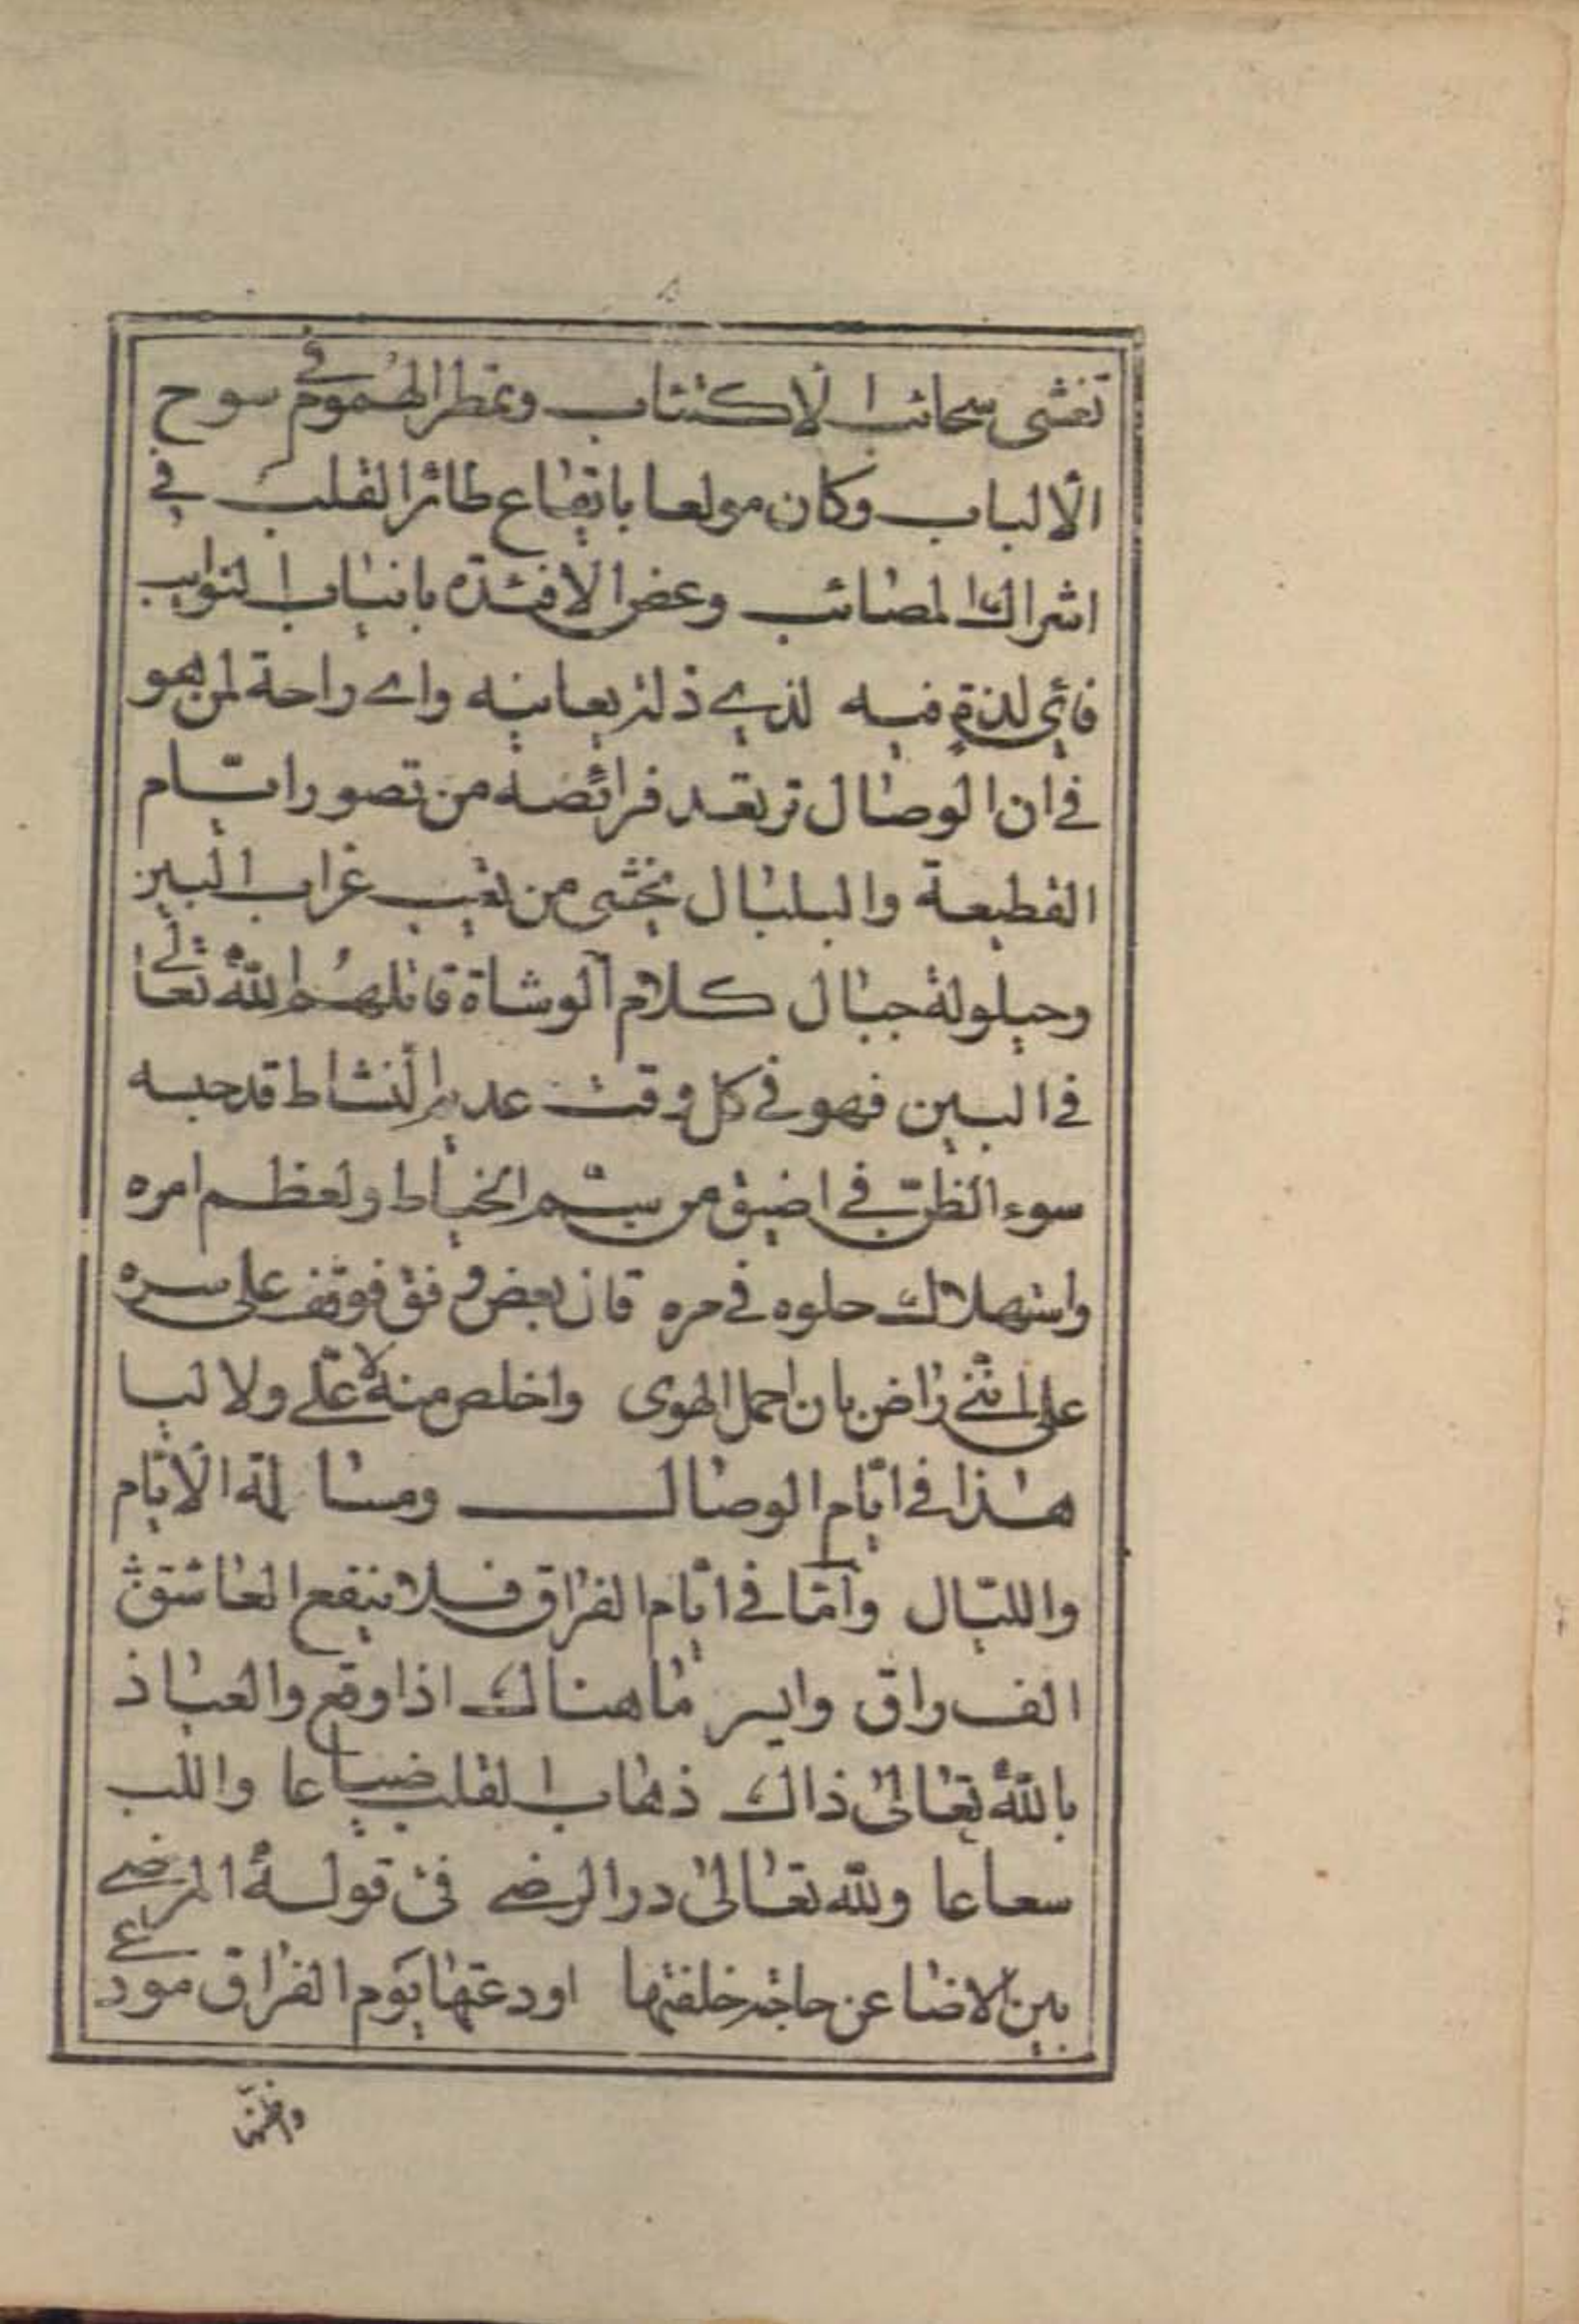 تغشى سحائب الاكتئاب وتمطر الهموم في سوح
الألباب وكان مولعا بايقاع طائر القلب في
اشراك المصائب وعض الافئدة بانياب النوايب
فاي لذة فيه لذي ذلة يعانيه واي راحة لمن هو
في ان الوصال ترتعد فرائصه من تصور اتسام
القطيعة والبلبال يخشى من نعيب غراب البين
وحيلولة جبال كلام الوشاة قاتلهم الله تعالى
في البين فهو في كل وقت عديم النشاط قد حبسه
سوء الظن في اضيق من سم الخياط ولعظم امره
واستهلاك حلوه في مره قال بعض من وفق فوقف على سره
على انني راض بان احمل الهوى واخلص منه لا علي ولا ليا
هذا في ايام الوصال ومسالمة الايام
والليال وأما في ايام الفراق فلا ينفع العاشق
الفراق وايسر ما هناك اذا وقع والعياذ
بالله تعالى ذاك ذهاب القلب ضياعا واللب
سعاعا ولله تعالى در الرضي في قوله المرضي
بين الاضا عن حاجة خلفتها اودعتها يوم الفراق مودعي